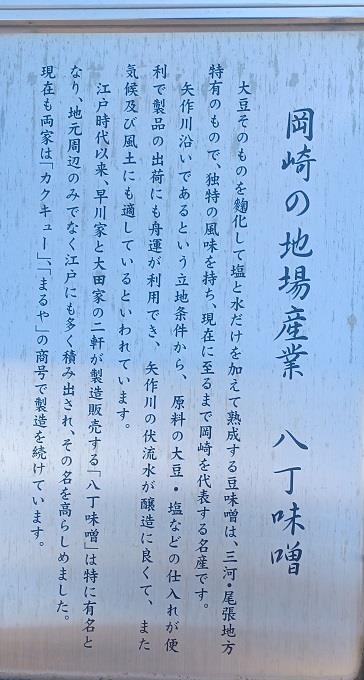 岡崎の地場産業 八丁味噌
大豆そのものを麹化して塩と水だけを加えて熟成する豆味噌は、三河・尾張地方
特有のもので、独特の風味を持ち、現在に至るまで岡崎を代表する名産です。
矢作川沿いであるという立地条件から、原料の大豆・塩などの仕入れが便
利で製品の出荷にも舟運が利用でき、矢作川の伏流水が醸造に良くて、また
気候及び風土にも適しているといわれています。
江戸時代以来、早川家と大田家の二軒が製造販売する「八丁味噌」は特に有名と
なり、地元周辺のみでなく江戸にも多く積み出され、その名を高らしめました。
現在も両家は「カクキュー」、「まるや」の商号で製造を続けています。